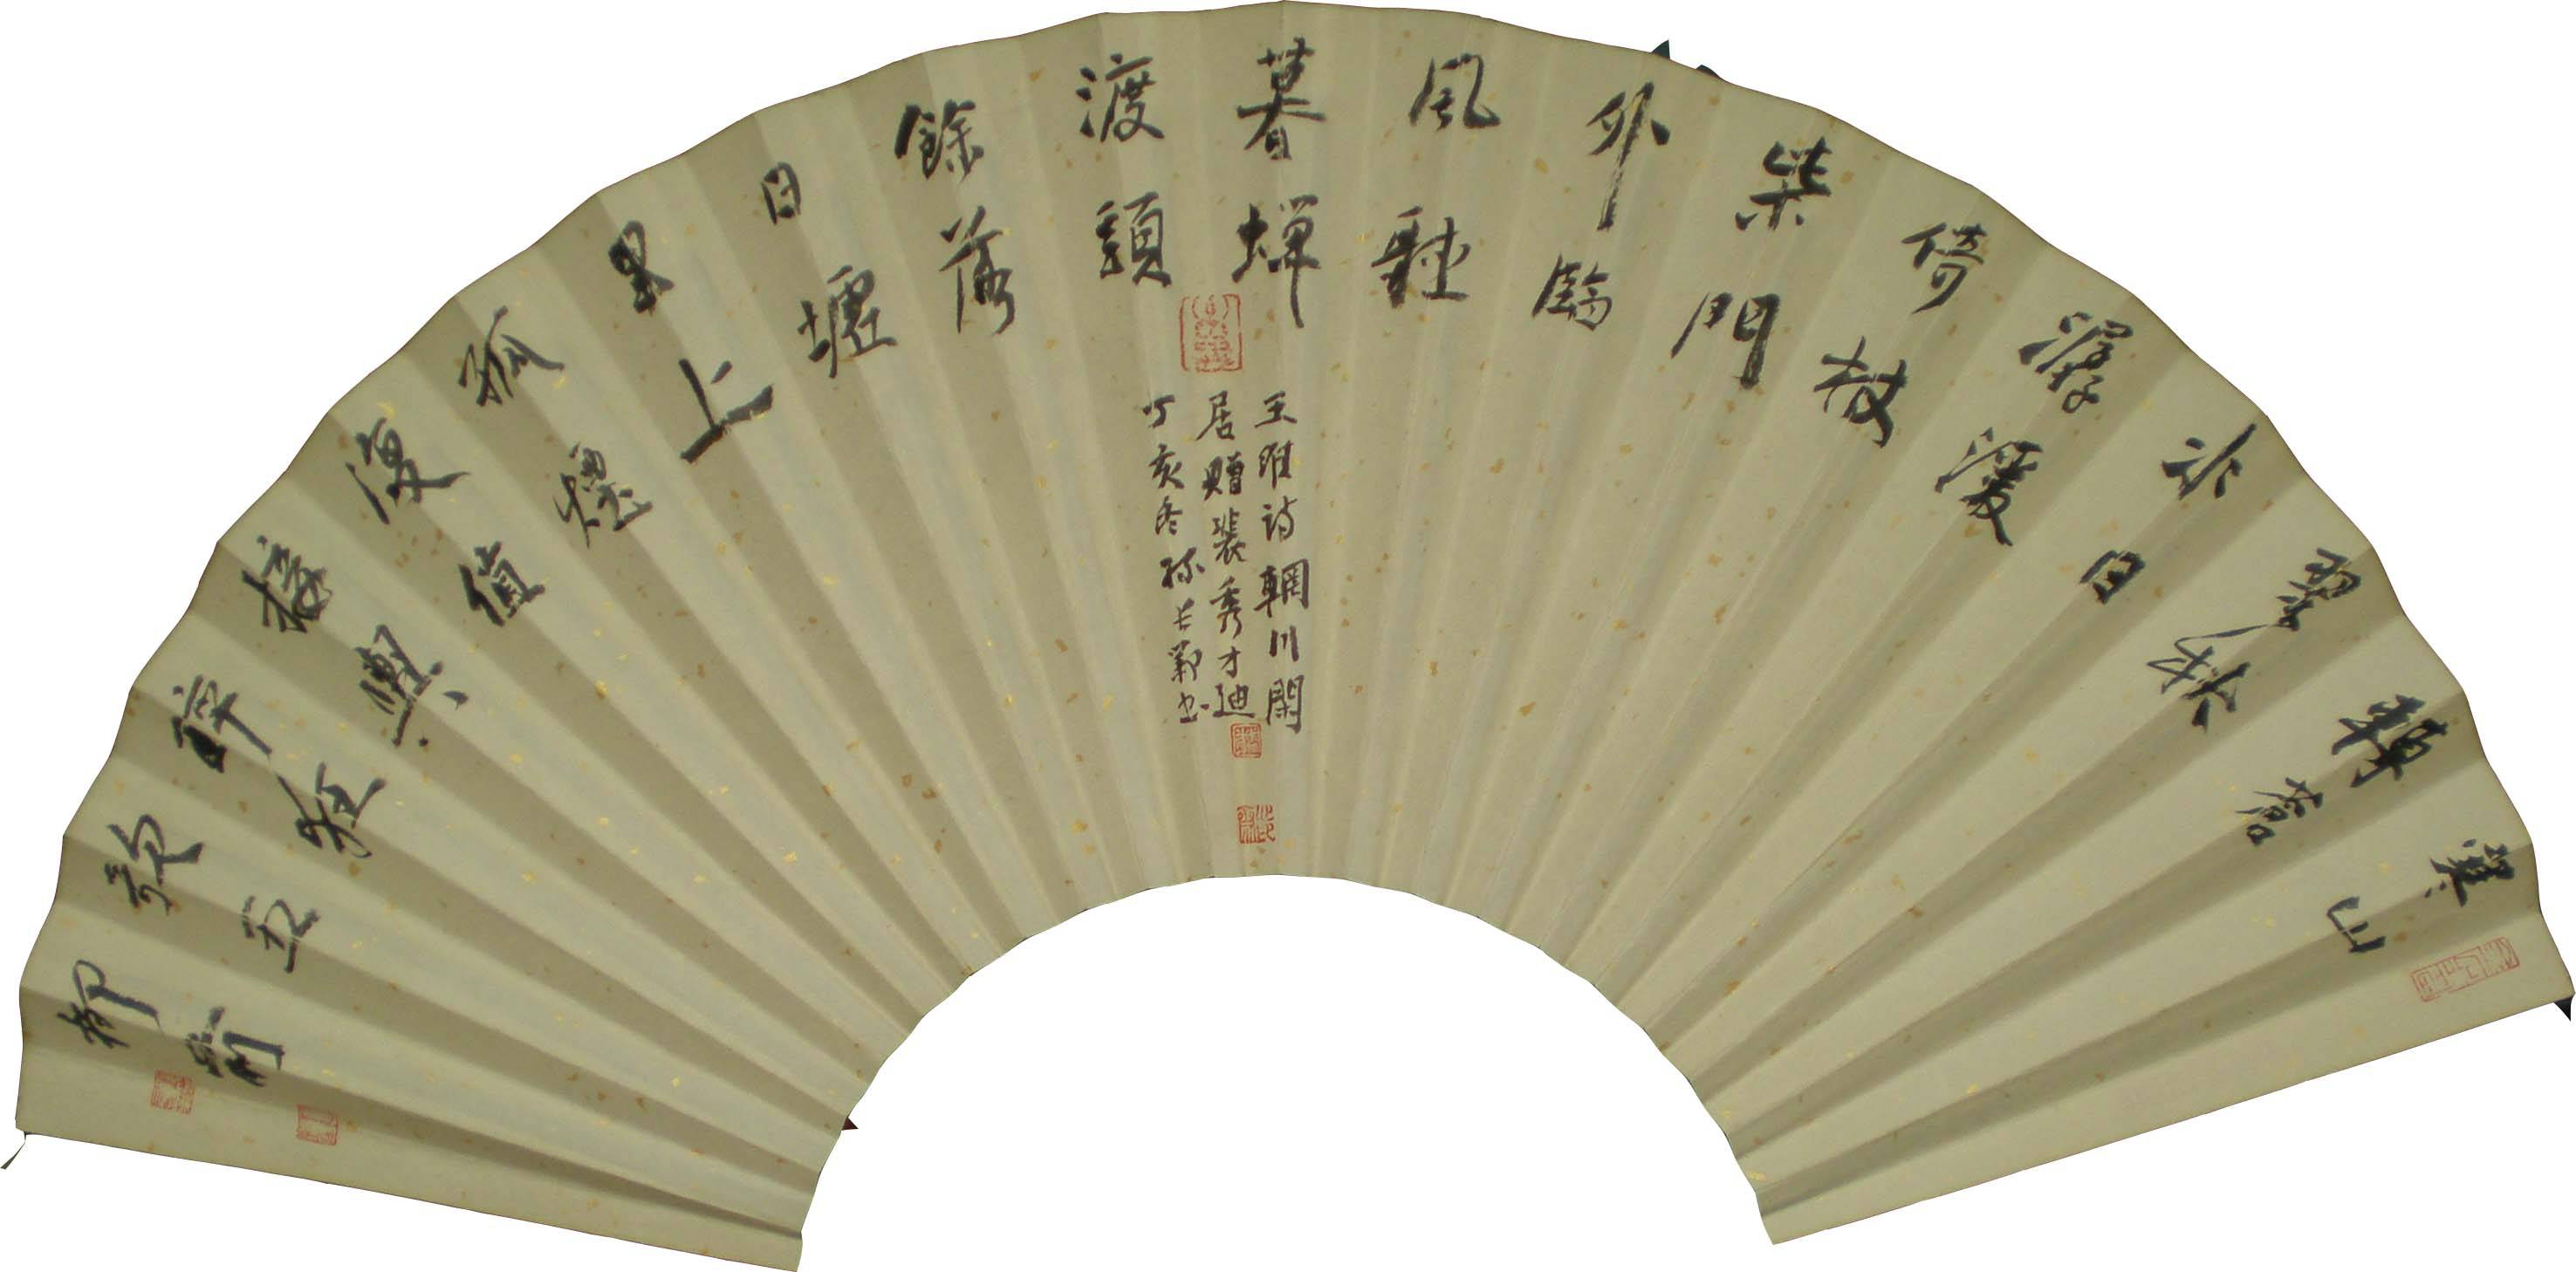 寒山
轉蒼
翠秋
水日
潺湲
倚杖
柴門
外臨
風聽
暮蟬
渡頭
餘落
日墟
里上
孤煙
復值
接輿
醉狂
歌五
柳前
王維詩輞川閑
居贈裴秀才迪
丁亥冬孫長書